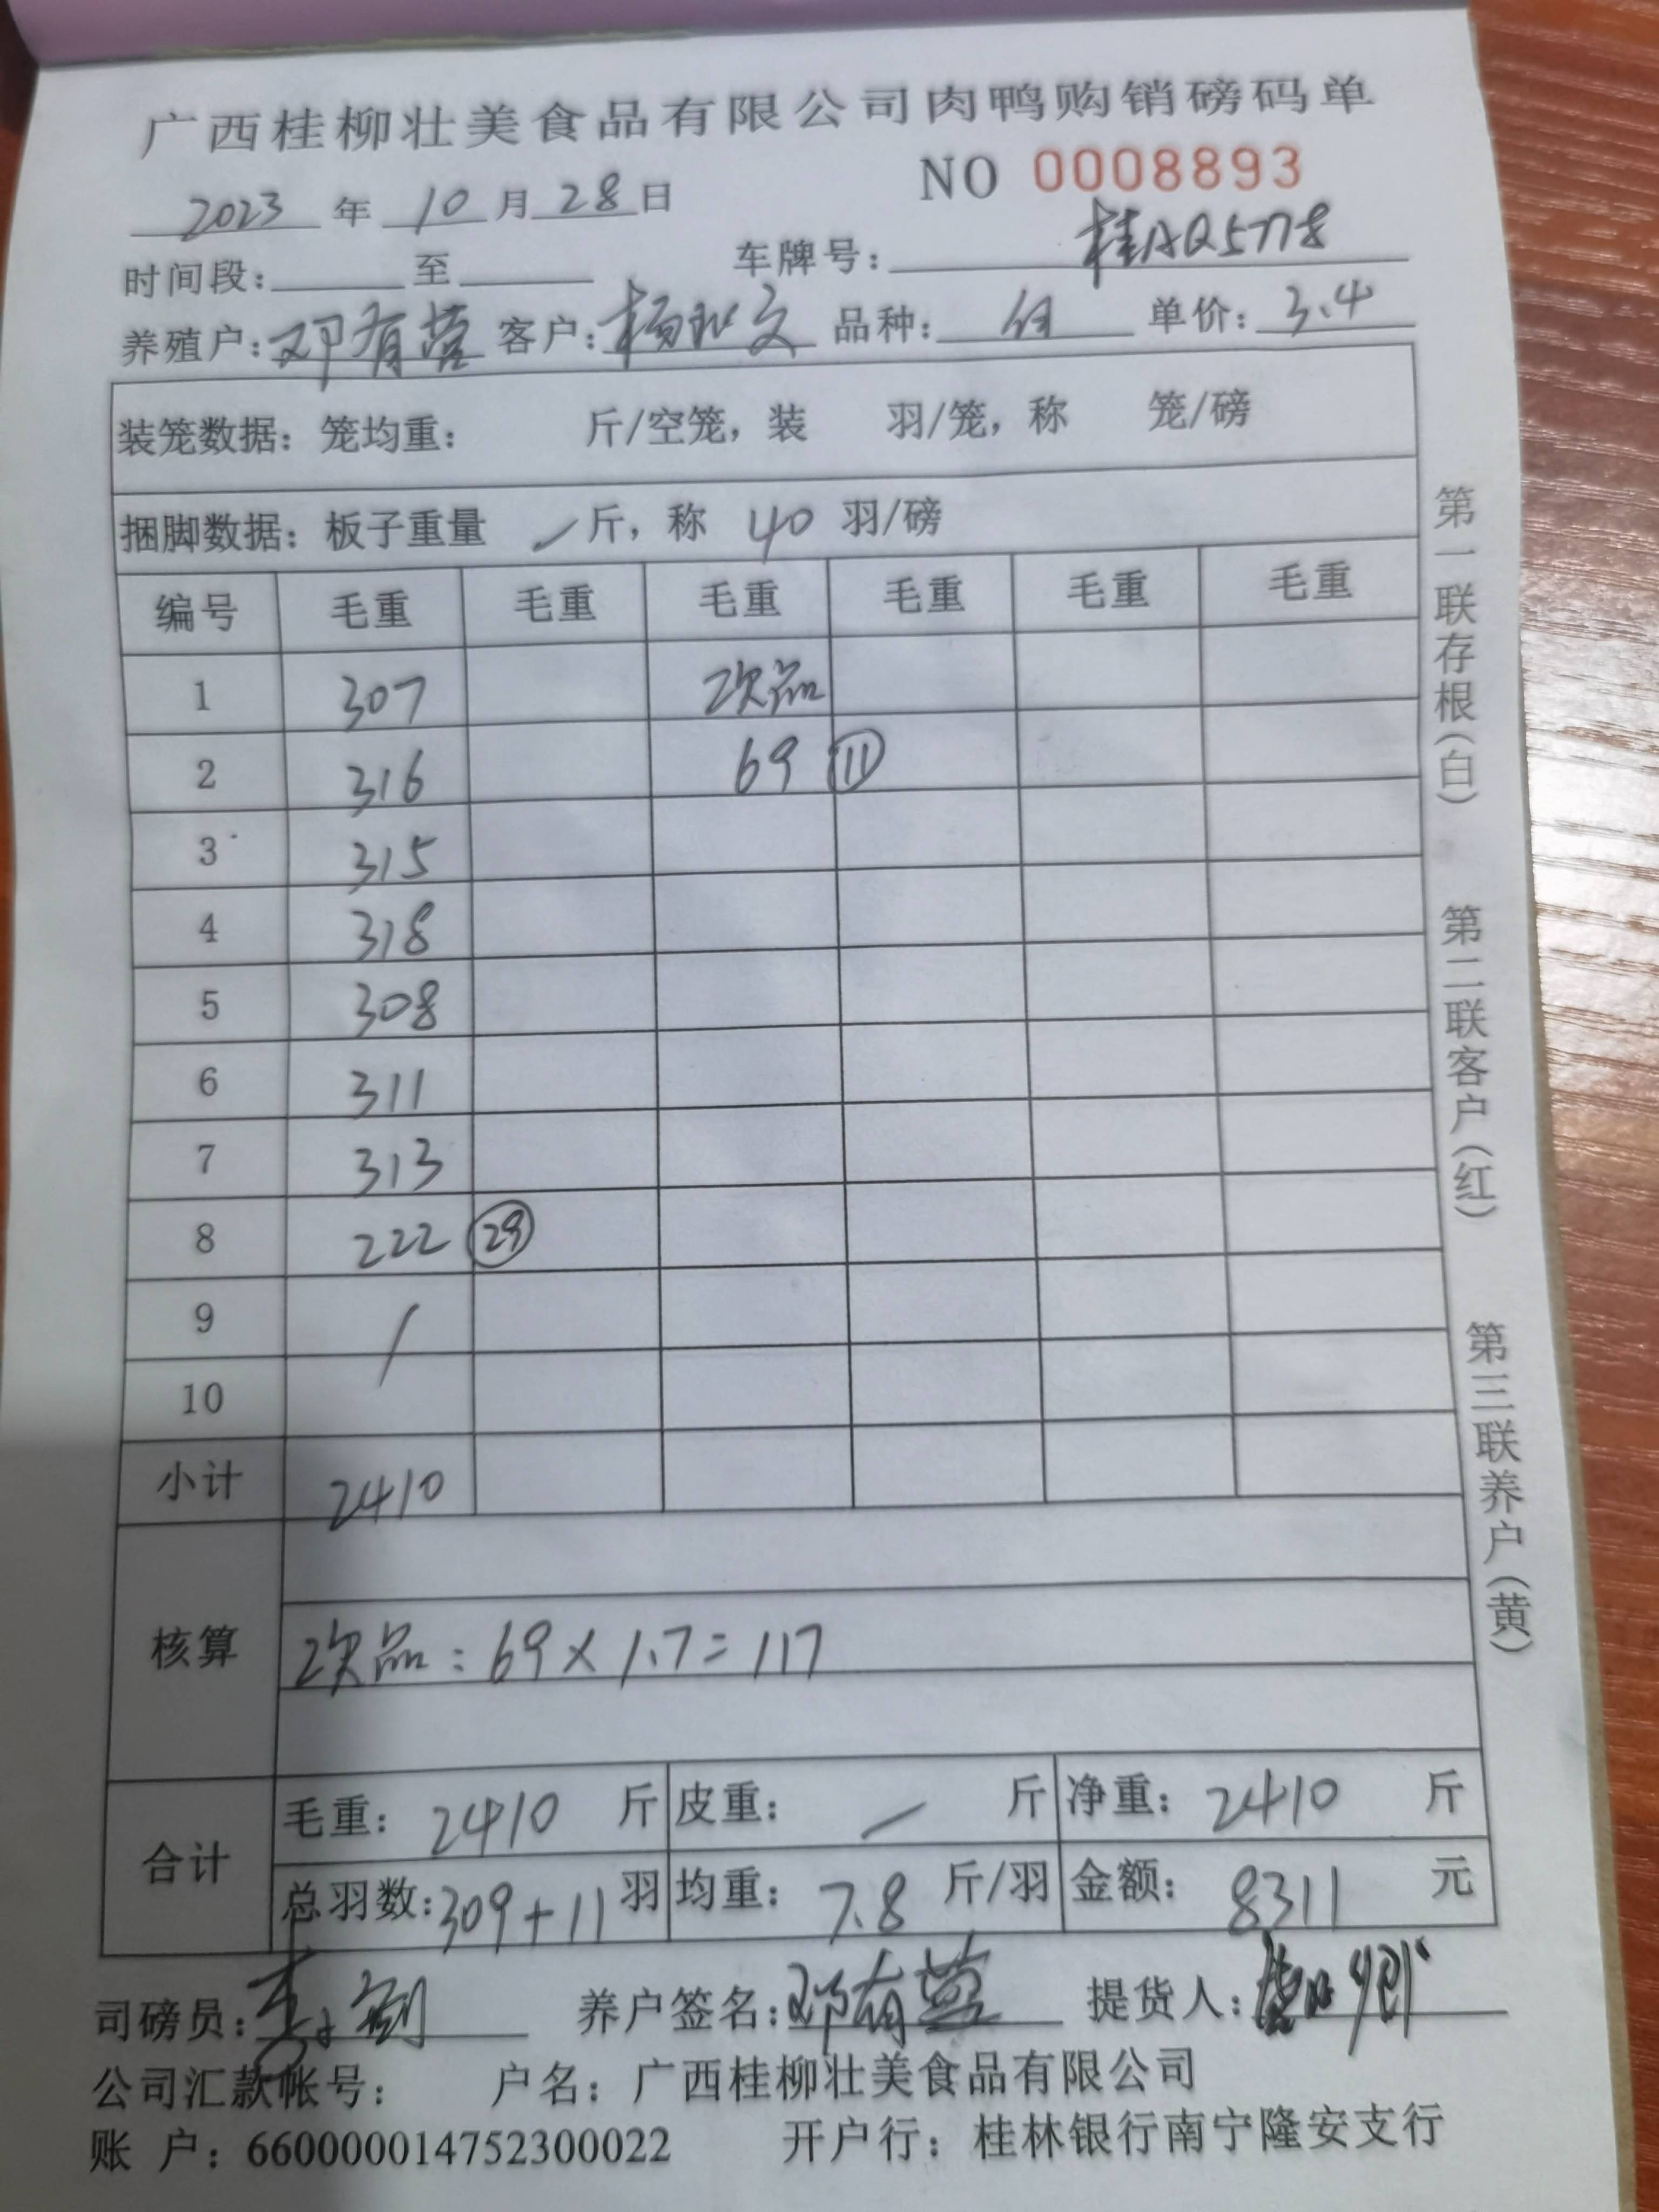 广西桂柳壮美食品有限公司肉鸭购销磅码单
NO 0008893
2023 年 10 月 28 日
时间段: 至 车牌号: 桂AQ5778
养殖户: 邓有营 客户: 杨 文 品种: 单价: 3.4
装笼数据: 笼均重: 斤/空笼, 装 羽/笼, 称 笼/磅
捆脚数据: 板子重量 / 斤, 称 40 羽/磅
编号 毛重 毛重 毛重 毛重 毛重 毛重
1 307 次品
2 316 69 ⑪
3 315
4 318
5 308
6 311
7 313
8 222 ㉙
9 /
10
小计 2410
核算
次品: 69×1.7=117
合计
毛重: 2410 斤 皮重: / 斤 净重: 2410 斤
总羽数: 309+11 羽 均重: 7.8 斤/羽 金额: 8311 元
司磅员: 李 养户签名: 邓有营 提货人:
公司汇款帐号: 户名: 广西桂柳壮美食品有限公司
账 户: 660000014752300022 开户行: 桂林银行南宁隆安支行
第一联存根(白)
第二联客户(红)
第三联养户(黄)